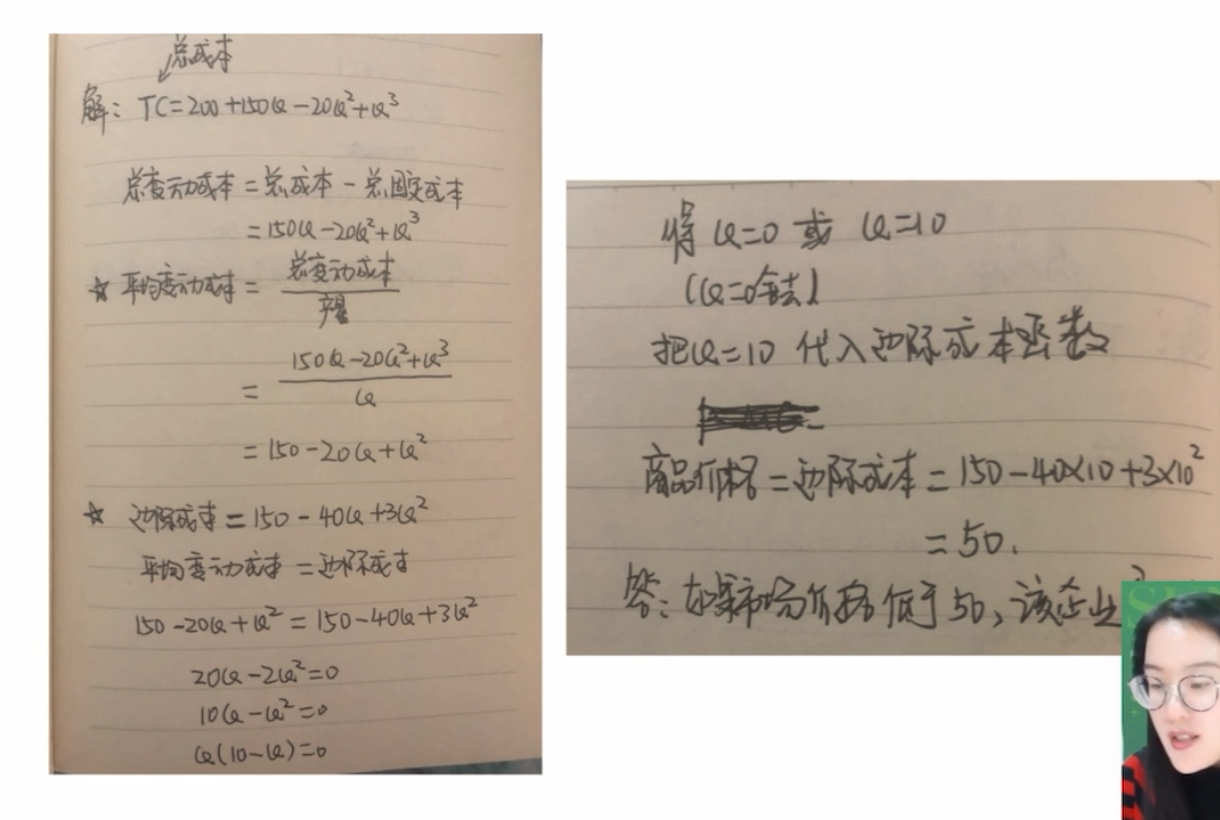 总成本
解：TC=200+150Q-20Q²+Q³
总变动成本=总成本-总固定成本
=150Q-20Q²+Q³
☆ 平均变动成本=总变动成本/产量
=(150Q-20Q²+Q³)/Q
=150-20Q+Q²
☆ 边际成本=150-40Q+3Q²
平均变动成本=边际成本
150-20Q+Q²=150-40Q+3Q²
20Q-2Q²=0
10Q-Q²=0
Q(10-Q)=0
得Q=0或Q=10
(Q=0舍去)
把Q=10代入边际成本函数
商品价格=边际成本=150-40×10+3×10²
=50.
答：如果市场价格低于50,该企业